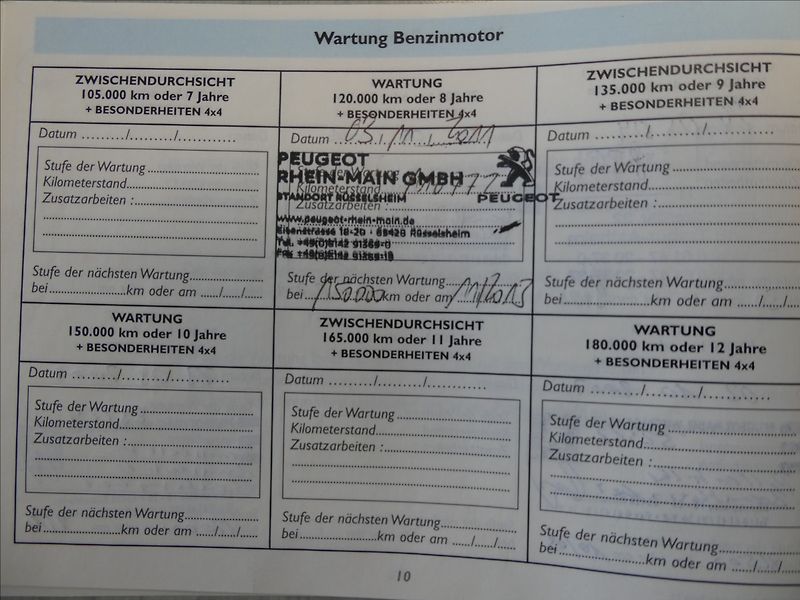 Wartung Benzinmotor
ZWISCHENDURCHSICHT
105.000 km oder 7 Jahre
+ BESONDERHEITEN 4x4
Datum ........./........../..............
Stufe der Wartung
Kilometerstand
Zusatzarbeiten :
Stufe der nächsten Wartung
bei........................km oder am ....../....../......
WARTUNG
120.000 km oder 8 Jahre
+ BESONDERHEITEN 4x4
Datum 03, 11, 2011
PEUGEOT
RHEIN-MAIN GMBH
Kilometerstand
STANDORT RÜSSELSHEIM
PEUGEOT
Zusatzarbeiten
www.peugeot-rhein-main.de
Eisenstrasse 18-20 · 65428 Rüsselsheim
Stufe der nächsten Wartung
bei 150.000 km oder am 11/2013
ZWISCHENDURCHSICHT
135.000 km oder 9 Jahre
+ BESONDERHEITEN 4x4
Datum ........./........../..............
Stufe der Wartung
Kilometerstand
Zusatzarbeiten :
Stufe der nächsten Wartung
bei........................km oder am ....../....../......
WARTUNG
150.000 km oder 10 Jahre
+ BESONDERHEITEN 4x4
Datum ........./........../..............
Stufe der Wartung
Kilometerstand
Zusatzarbeiten :
Stufe der nächsten Wartung
bei........................km oder am ....../....../......
ZWISCHENDURCHSICHT
165.000 km oder 11 Jahre
+ BESONDERHEITEN 4x4
Datum ........./........../..............
Stufe der Wartung
Kilometerstand
Zusatzarbeiten :
Stufe der nächsten Wartung
bei........................km oder am ....../....../......
WARTUNG
180.000 km oder 12 Jahre
+ BESONDERHEITEN 4x4
Datum ........./........../..............
Stufe der Wartung
Kilometerstand
Zusatzarbeiten :
Stufe der nächsten Wartung
bei........................km oder am ....../....../......
10